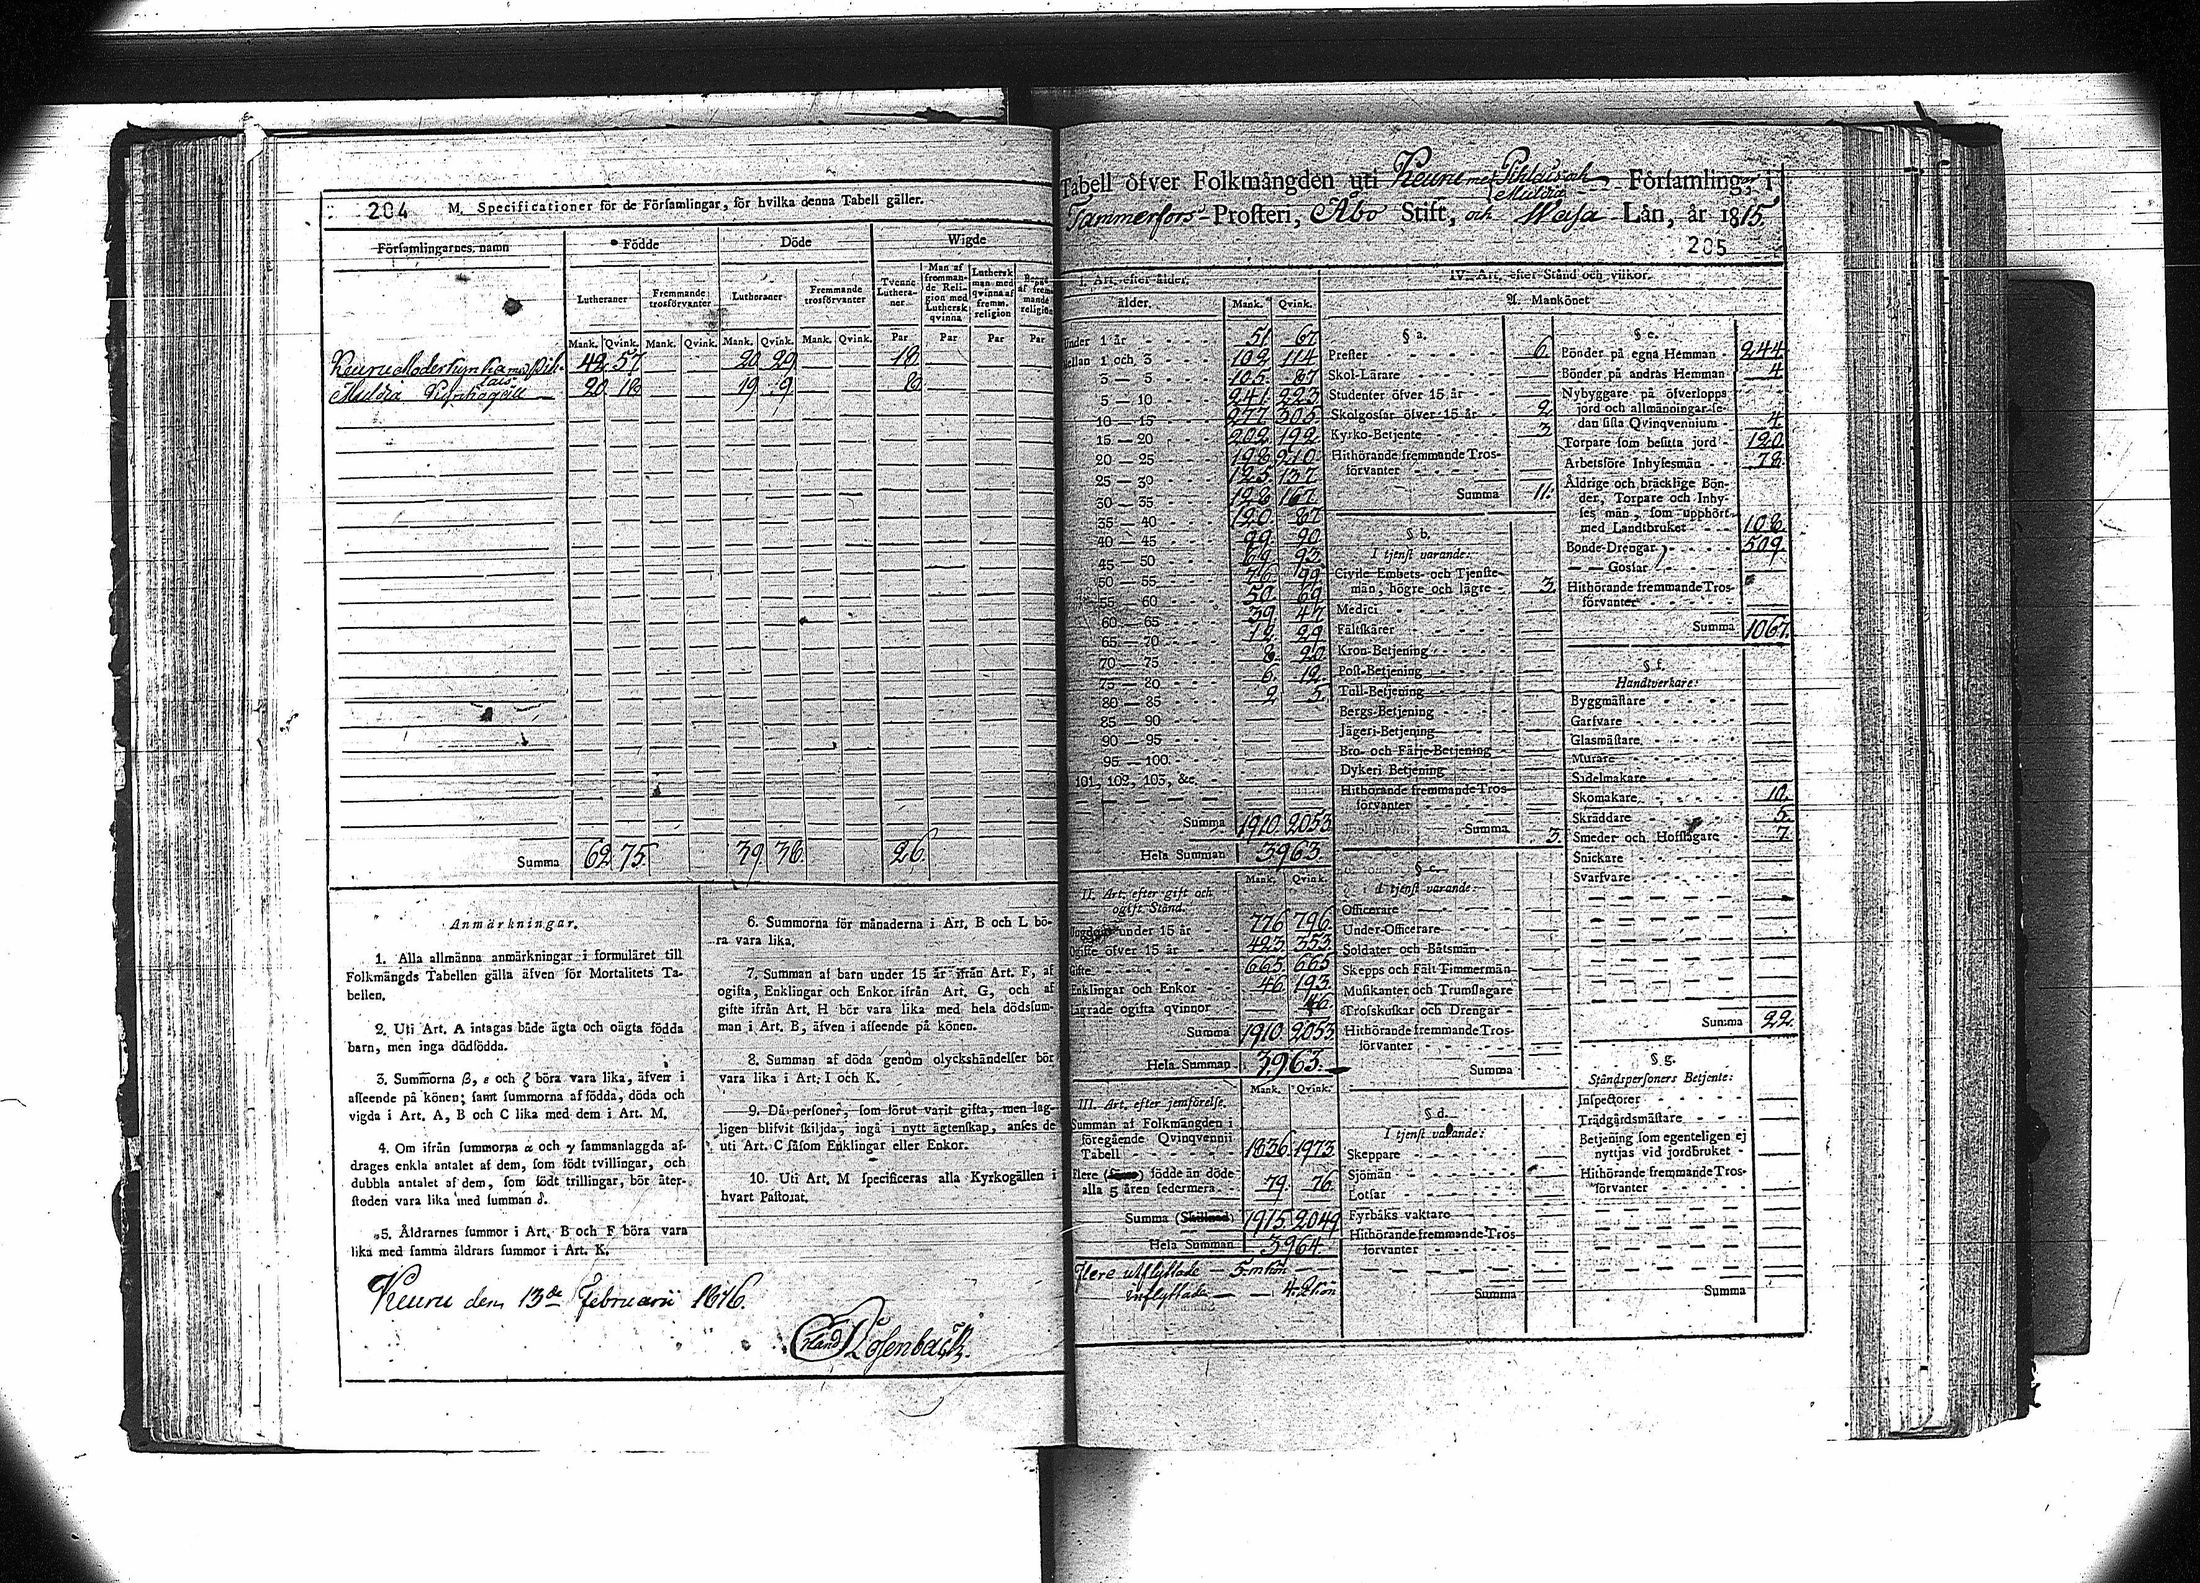 204 M. Specificationer för de Församlingar, för hvilka denna Tabell gäller.
Församlingarnes namn
Födde
Döde
Wigde
Lutheraner
Fremmande trosförvanter
Lutheraner
Fremmande trosförvanter
Tvenne Lutheraner
Man af fremmande Religion med Luthersk qvinna
Luthersk man med qvinna af fremm. religion
Mank. Qvink. Mank. Qvink. Mank. Qvink. Mank. Qvink. Par Par Par Par
Keuru Moderkyrka med Pih- 42 57 20 29 18
lais
Multia 20 18 19 9 8
Summa 62 75 39 38 26
Anmärkningar.
1. Alla allmänna anmärkningar i formuläret till
Folkmängds Tabellen gälla äfven för Mortalitets Ta-
bellen.
2. Uti Art. A intagas både ägta och oägta födda
barn, men inga dödfödda.
3. Summorna β, ε och ζ böra vara lika, äfven i
afseende på könen; samt summorna af födda, döda och
vigda i Art. A, B och C lika med dem i Art. M.
4. Om ifrån summorna α och γ sammanlaggda af-
drages enkla antalet af dem, som födt tvillingar, och
dubbla antalet af dem, som födt trillingar, bör åter-
stoden vara lika med summan δ.
5. Åldrarnes summor i Art. B och F böra vara
lika med samma åldrars summor i Art. K.
6. Summorna för månaderna i Art. B och L bö-
ra vara lika.
7. Summan af barn under 15 år ifrån Art. F, af
ogifta, Enklingar och Enkor ifrån Art. G, och af
gifte ifrån Art. H bör vara lika med hela dödssum-
man i Art. B, äfven i afseende på könen.
8. Summan af döda genom olyckshändelser bör
vara lika i Art. I och K.
9. Då personer, som förut varit gifta, men lag-
ligen blifvit skiljda, ingå i nytt ägtenskap, anses de
uti Art. C såsom Enklingar eller Enkor.
10. Uti Art. M specificeras alla Kyrkogällen i
hvart Pastorat.
Keuru den 13de Februarii 1816.
Rosenback.
Tabell öfver Folkmängden uti Keuru med Pihlais och Multia Församlingar i
Tammerfors Prosteri, Åbo Stift, och Wasa Län, år 1815.
205
I. Art. efter ålder.
ålder. Mank. Qvink.
Under 1 år 51 67
Mellan 1 och 3 102 114
3 — 5 105 87
5 — 10 241 223
10 — 15 277 305
15 — 20 202 192
20 — 25 198 210
25 — 30 125 137
30 — 35 128 167
35 — 40 120 87
40 — 45 99 90
45 — 50 69 93
50 — 55 76 99
55 — 60 50 69
60 — 65 39 47
65 — 70 12 29
70 — 75 8 20
75 — 80 6 12
80 — 85 2 5
85 — 90
90 — 95
95 — 100
101, 102, 103, &c.
Summa 1910 2053
Hela Summan 3963
Mank. Qvink.
II. Art. efter gift och
ogift Stånd.
Ungdom under 15 år 776 796
Ogifte öfver 15 år 423 353
Gifte 665 665
Enklingar och Enkor 46 193
Lägrade ogifta qvinnor 46
Summa 1910 2053
Hela Summan 3963
Mank. Qvink.
III. Art. efter jemförelse.
Summan af Folkmängden i
föregående Qvinqvennii
Tabell 1836 1973
flere födde än döde
alla 5 åren sedermera 79 76
Summa (Skillnad) 1915 2049
Hela Summan 3964
Flere utflyttade — 5 m kön
inflyttade — 4 q kön
IV. Art. efter Stånd och vilkor.
A. Mankönet
§ a.
Prester 6
Skol-Lärare
Studenter öfver 15 år
Skolgossar öfver 15 år 2
Kyrko-Betjente 3
Hithörande fremmande Tros-
förvanter
Summa 11
§ b.
I tjenst varande:
Civile Embets- och Tjenste-
män, högre och lägre 3
Medici
Fältskärer
Kron-Betjening
Post-Betjening
Tull-Betjening
Bergs-Betjening
Jägeri-Betjening
Bro- och Färje-Betjening
Dykeri Betjening
Hithörande fremmande Tros-
förvanter
Summa 3
§ c.
I tjenst varande:
Officerare
Under-Officerare
Soldater och Båtsmän
Skepps och Fält Timmermän
Musikanter och Trumslagare
Trosskuskar och Drengar
Hithörande fremmande Tros-
förvanter
Summa
§ d.
I tjenst varande:
Skeppare
Sjömän
Lotsar
Fyrbåks vaktare
Hithörande fremmande Tros-
förvanter
Summa
§ e.
Bönder på egna Hemman 244
Bönder på andras Hemman 4
Nybyggare på öfverlopps
jord och allmänningar se-
dan sista Qvinqvennium 4
Torpare som besitta jord 120
Arbetsföre Inhysesmän 78
Åldrige och bräcklige Bön-
der, Torpare och Inhy-
ses män, som upphört
med Landtbruket 108
Bonde-Drengar 509
— — Gossar
Hithörande fremmande Tros-
förvanter
Summa 1067
§ f.
Handtverkare:
Byggmästare
Garfvare
Glasmästare
Murare
Sadelmakare
Skomakare 10
Skräddare 5
Smeder och Hofslagare 7
Snickare
Svarfvare
Summa 22
§ g.
Ståndspersoners Betjente:
Inspectorer
Trädgårdsmästare
Betjening som egenteligen ej
nyttjas vid jordbruket
Hithörande fremmande Tros-
förvanter
Summa